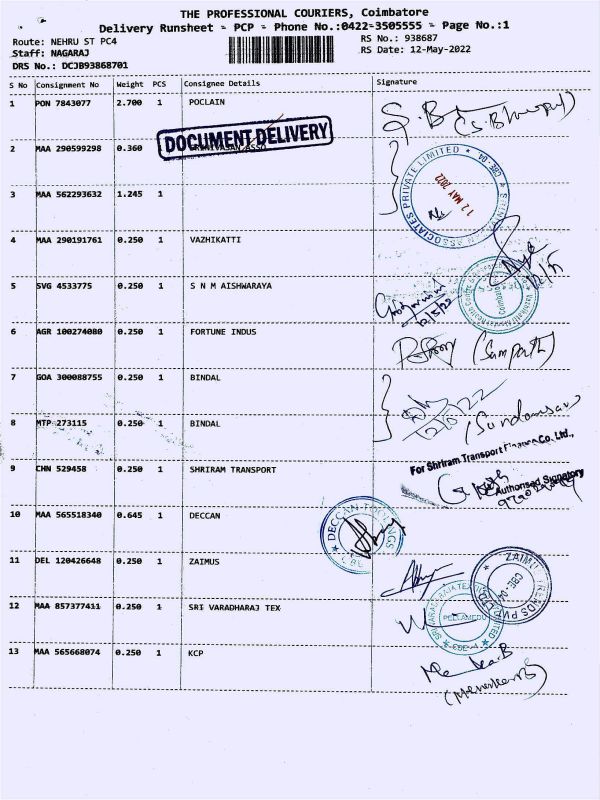 THE PROFESSIONAL COURIERS, Coimbatore
Delivery Runsheet - PCP - Phone No.:0422-3505555 - Page No.:1
Route: NEHRU ST PC4 RS No.: 938687
Staff: NAGARAJ RS Date: 12-May-2022
DRS No.: DCJB93868701
S No Consignment No Weight PCS Consignee Details Signature
1 PON 7843077 2.700 1 POCLAIN
DOCUMENT DELIVERY
2 MAA 290599298 0.360 SRINIVASAN ASSO
ASSOCIATES PRIVATE LIMITED * CBE-04 *
12 MAY 2022
3 MAA 562293632 1.245 1
4 MAA 290191761 0.250 1 VAZHIKATTI
5 SVG 4533775 0.250 1 S N M AISHWARAYA
12/5/22
6 AGR 100274080 0.250 1 FORTUNE INDUS
(Sampath)
7 GOA 300088755 0.250 1 BINDAL
12/5/22
8 MTP 273115 0.250 1 BINDAL
For Shriram Transport Finance Co. Ltd.,
9 CHN 529458 0.250 1 SHRIRAM TRANSPORT
Authorised Signatory
10 MAA 565518340 0.645 1 DECCAN
11 DEL 120426648 0.250 1 ZAIMUS
12 MAA 857377411 0.250 1 SRI VARADHARAJ TEX
PEELAMEDU
13 MAA 565668074 0.250 1 KCP